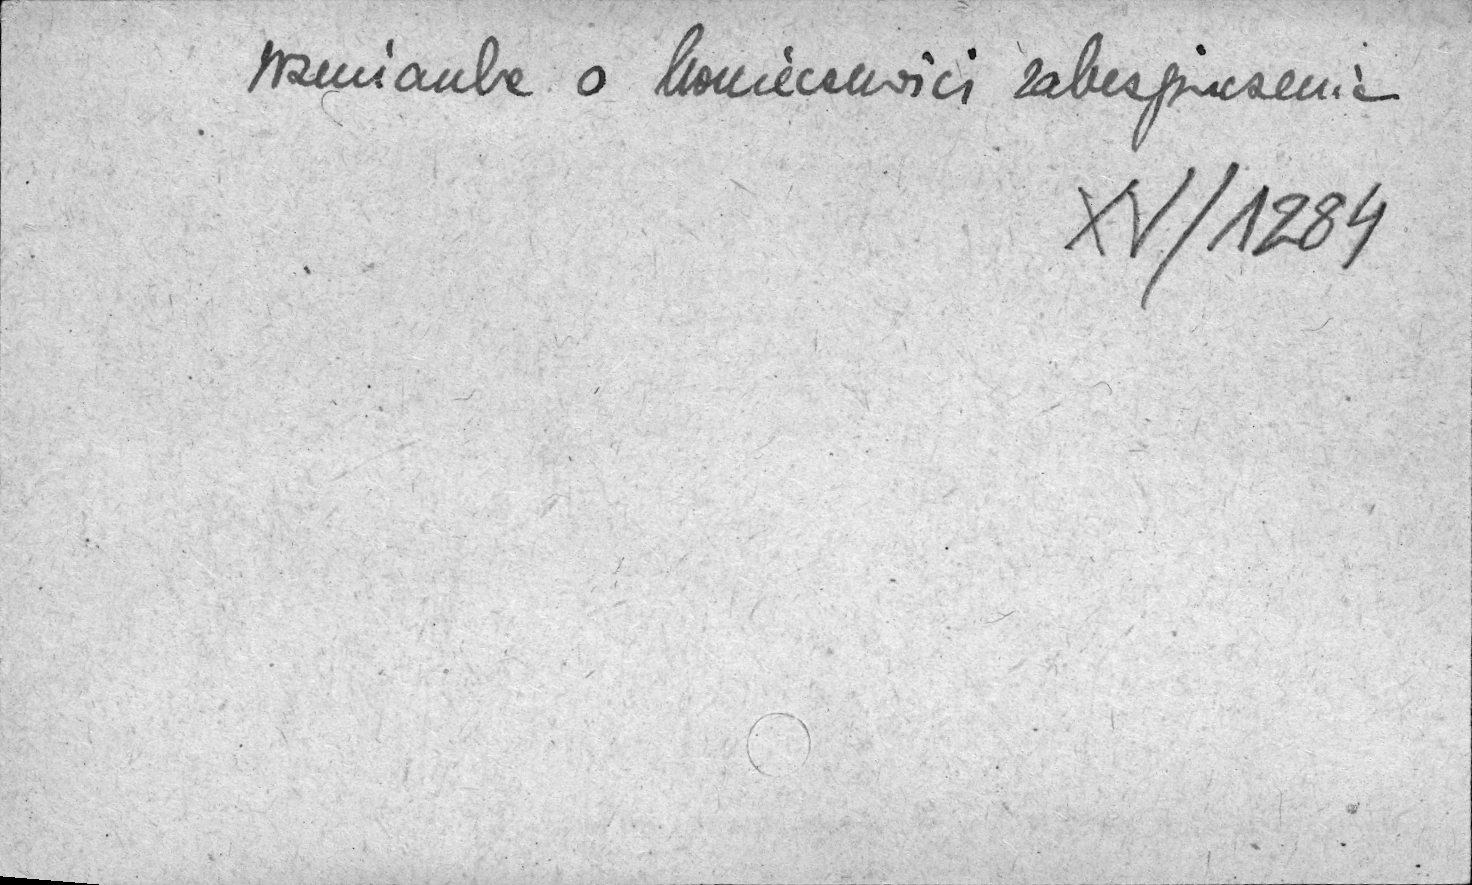 wzmianka o konieczności zabezpieczenia
XV/1284